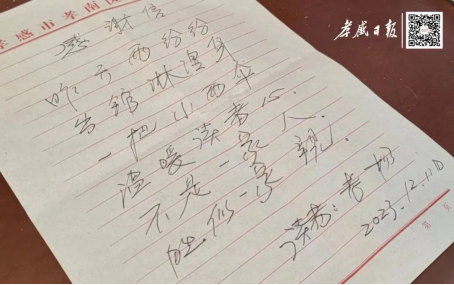 孝感日报
孝感市孝南区
感谢信
昨天雨纷纷
出馆淋湿身
一把小雨伞
温暖读者心.
不是一家人.
胜似一家亲.
读者:
2023.12.10